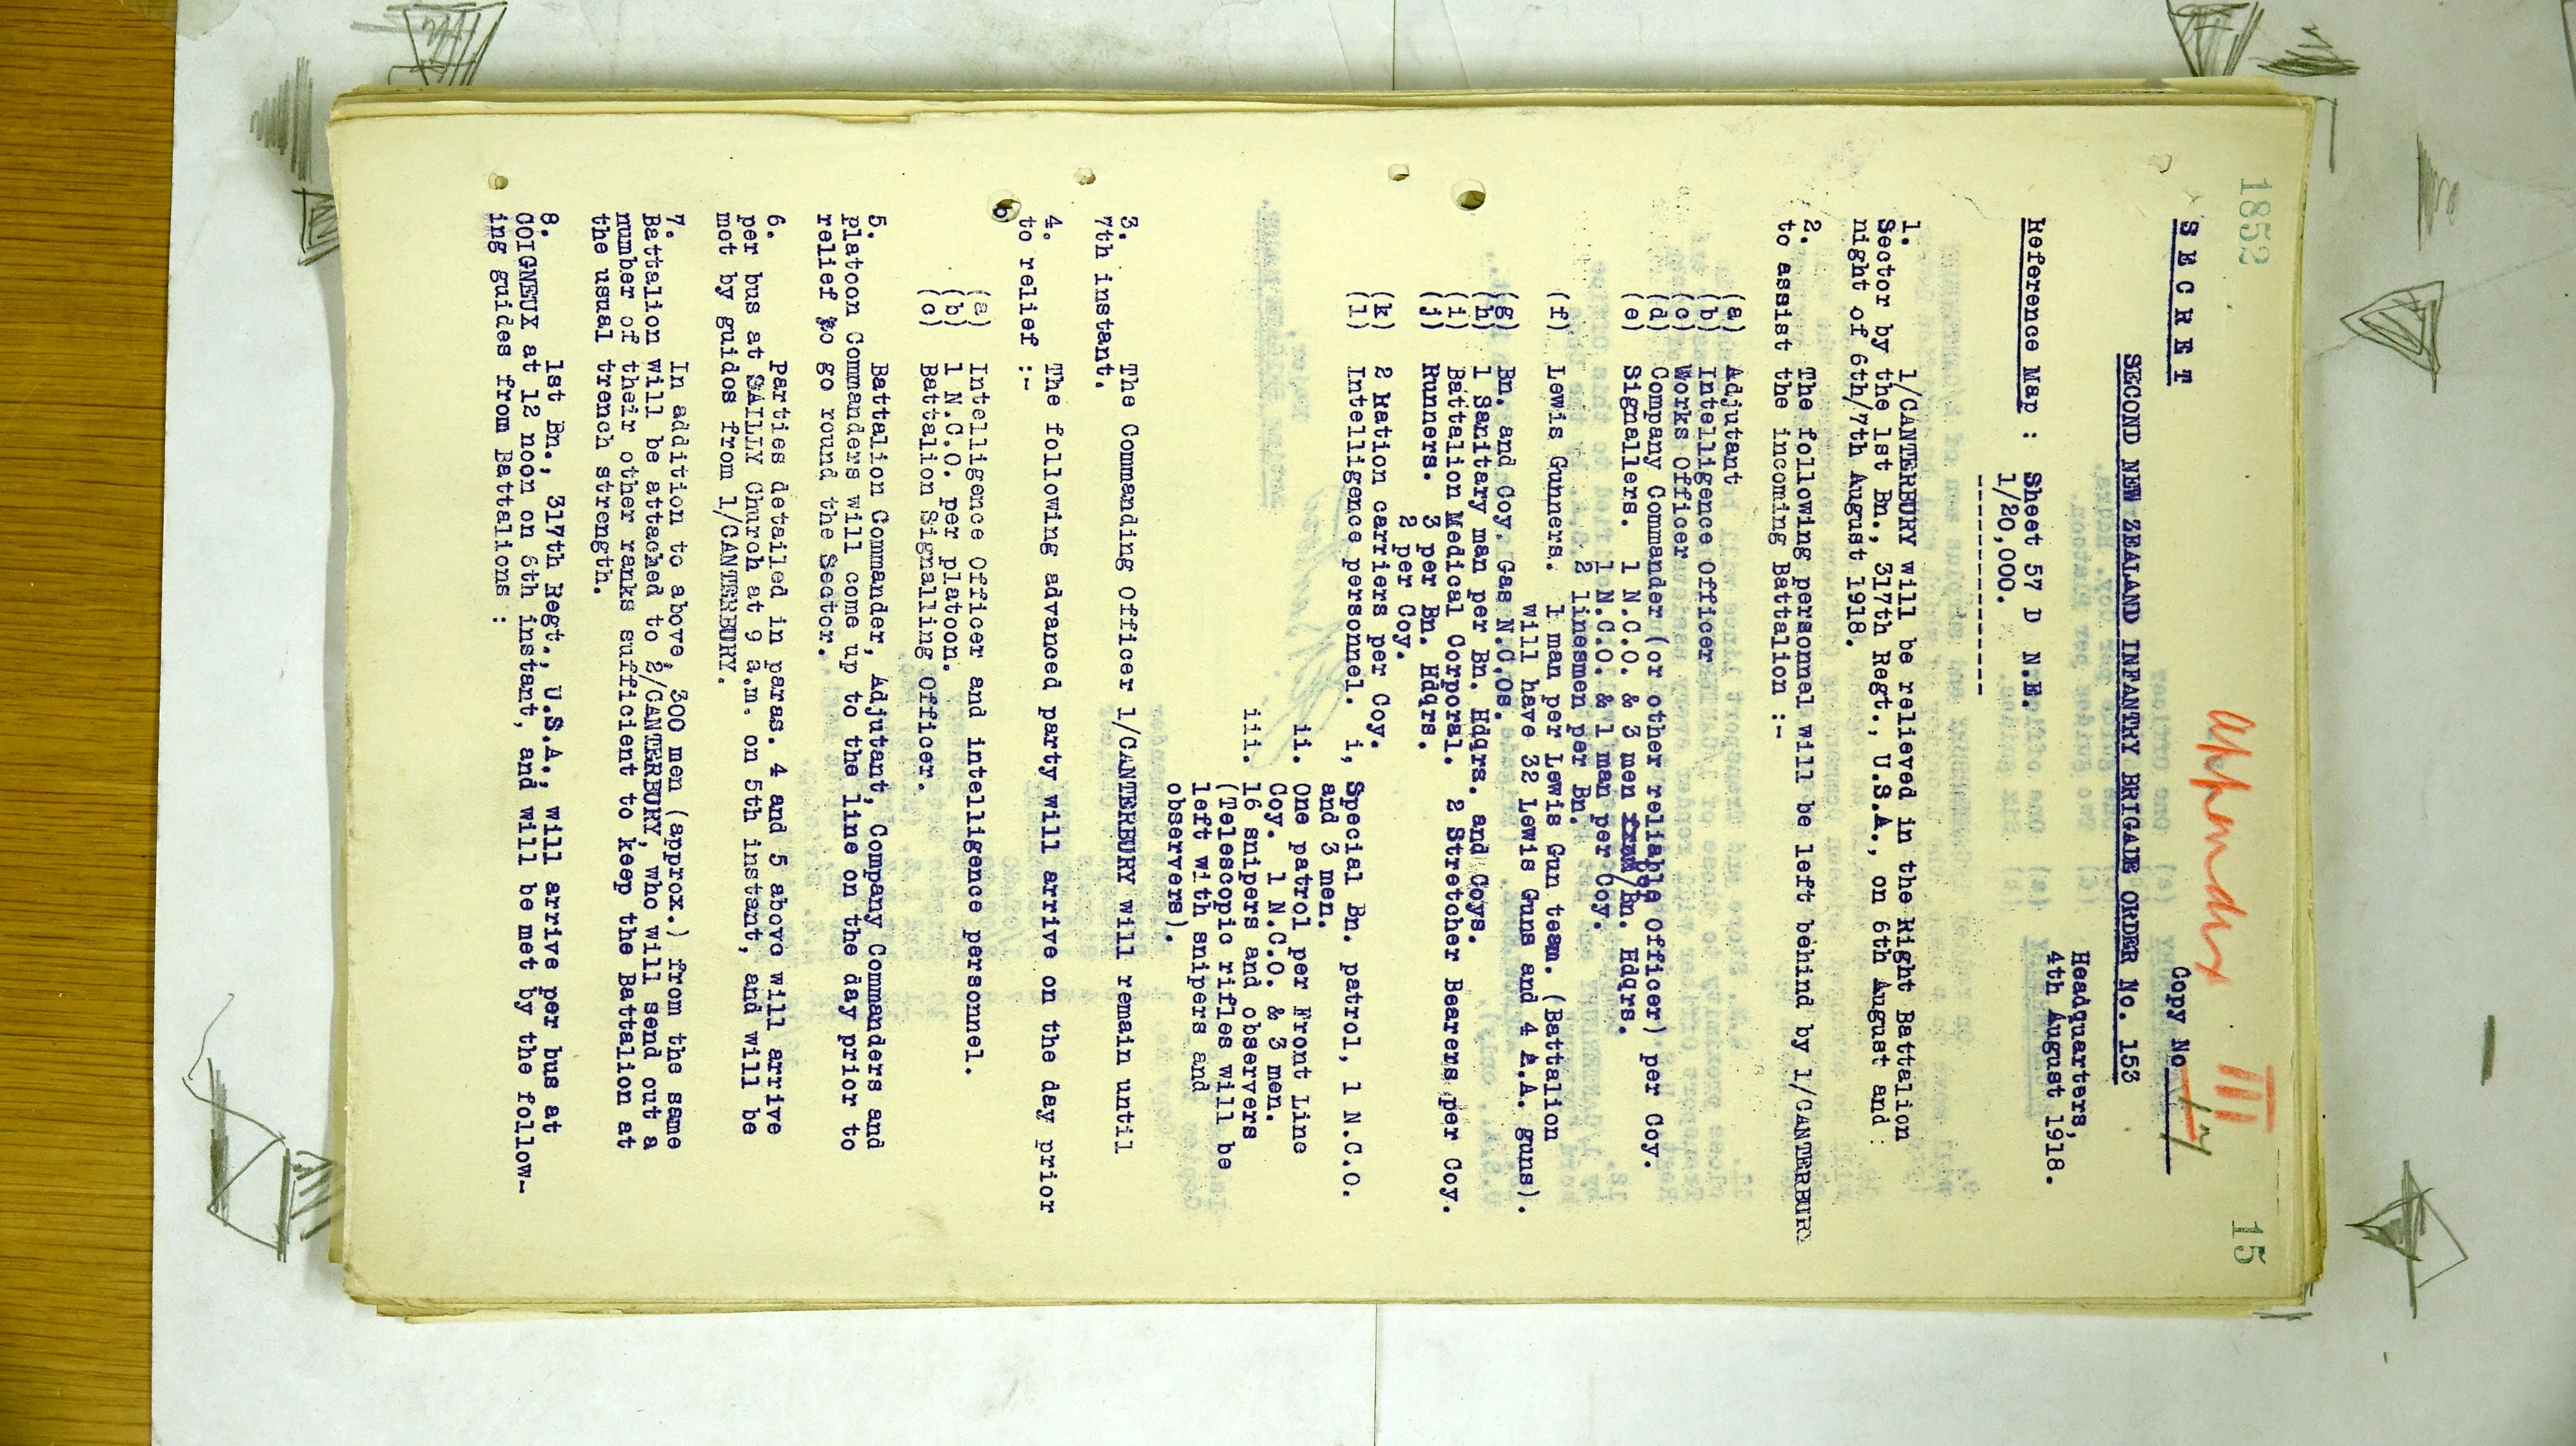 1852
15
Appendix III
SECRET
Copy No 17
SECOND NEW ZEALAND INFANTRY BRIGADE ORDER No. 153
Headquarters,
4th August 1918.
Reference Map : Sheet 57 D N.E.
1/20,000.
-----------------
1. 1/CANTERBURY will be relieved in the Right Battalion
Sector by the 1st Bn., 317th Regt., U.S.A., on 6th August and
night of 6th/7th August 1918.
2. The following personnel will be left behind by 1/CANTERBURY
to assist the incoming Battalion :-
(a) Adjutant
(b) Intelligence Officer
(c) Works Officer
(d) Company Commander (or other reliable Officer) per Coy.
(e) Signallers. 1 N.C.O. & 3 men Bn. Hdqrs.
1 N.C.O. & 1 man per Coy.
2 linesmen per Bn.
(f) Lewis Gunners. 1 man per Lewis Gun team. (Battalion
will have 32 Lewis Guns and 4 A.A. guns).
(g) Bn. and Coy. Gas N.C.Os.
(h) 1 Sanitary man per Bn. Hdqrs. and Coys.
(i) Battalion Medical Corporal. 2 Stretcher Bearers per Coy.
(j) Runners. 3 per Bn. Hdqrs.
2 per Coy.
(k) 2 Ration carriers per Coy.
(l) Intelligence personnel. i, Special Bn. patrol, 1 N.C.O.
and 3 men.
ii. One patrol per Front Line
Coy. 1 N.C.O. & 3 men.
iii. 16 snipers and observers
(Telescopic rifles will be
left with snipers and
observers).
3. The Commanding Officer 1/CANTERBURY will remain until
7th instant.
4. The following advanced party will arrive on the day prior
to relief :-
(a) Intelligence Officer and intelligence personnel.
(b) 1 N.C.O. per platoon.
(c) Battalion Signalling Officer.
5. Battalion Commander, Adjutant, Company Commanders and
platoon Commanders will come up to the line on the day prior to
relief to go round the Sector.
6. Parties detailed in paras. 4 and 5 above will arrive
per bus at SAILLY Church at 9 a.m. on 5th instant, and will be
met by guides from 1/CANTERBURY.
7. In addition to above, 300 men (approx.) from the same
Battalion will be attached to 2/CANTERBURY, who will send out a
number of their other ranks sufficient to keep the Battalion at
the usual trench strength.
8. 1st Bn., 317th Regt., U.S.A., will arrive per bus at
COIGNEUX at 12 noon on 6th instant, and will be met by the follow-
ing guides from Battalions :